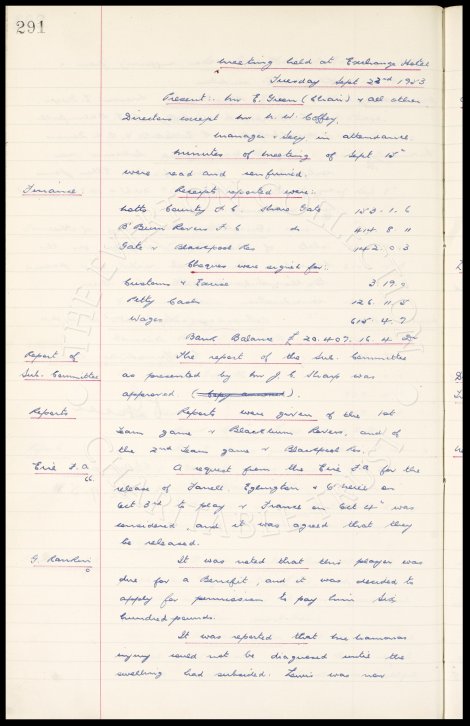 291
Meeting held at Exchange Hotel
Tuesday Sept 22nd 1953
Present:- Mr E. Green (Chair) & all other
Directors except Mr N. W. Coffey,
Manager & Secy in attendance.
Minutes of Meeting of Sept 15th
were read and confirmed.
Finance
Receipts reported were:-
Notts County F.C. Share Gate 153. 1. 6
B'Burn Rovers F.C do 414. 8. 11
Gate v Blackpool Res 142. 0. 3
Cheques were signed for:-
Customs & Excise 3. 19. 0
Petty Cash 126. 11. 5
Wages 615. 4. 7
Bank Balance £ 20,407. 16. 4 Dr
Report of
Sub. Committee
The report of the Sub. Committee
as presented by Mr J. C. Sharp was
approved.
Reports
Reports were given of the 1st
team game v Blackburn Rovers, and of
the 2nd team game v Blackpool Res.
Eire F.A
A request from the Eire F.A for the
release of Farrell, Eglington & O'Neill on
Oct 3rd to play v France on Oct 4th was
considered, and it was agreed that they
be released.
G. Rankin
It was noted that this player was
due for a Benefit, and it was decided to
apply for permission to pay him six
hundred pounds.
It was reported that McNamaras
injury could not be diagnosed until the
swelling had subsided. Lewis was now